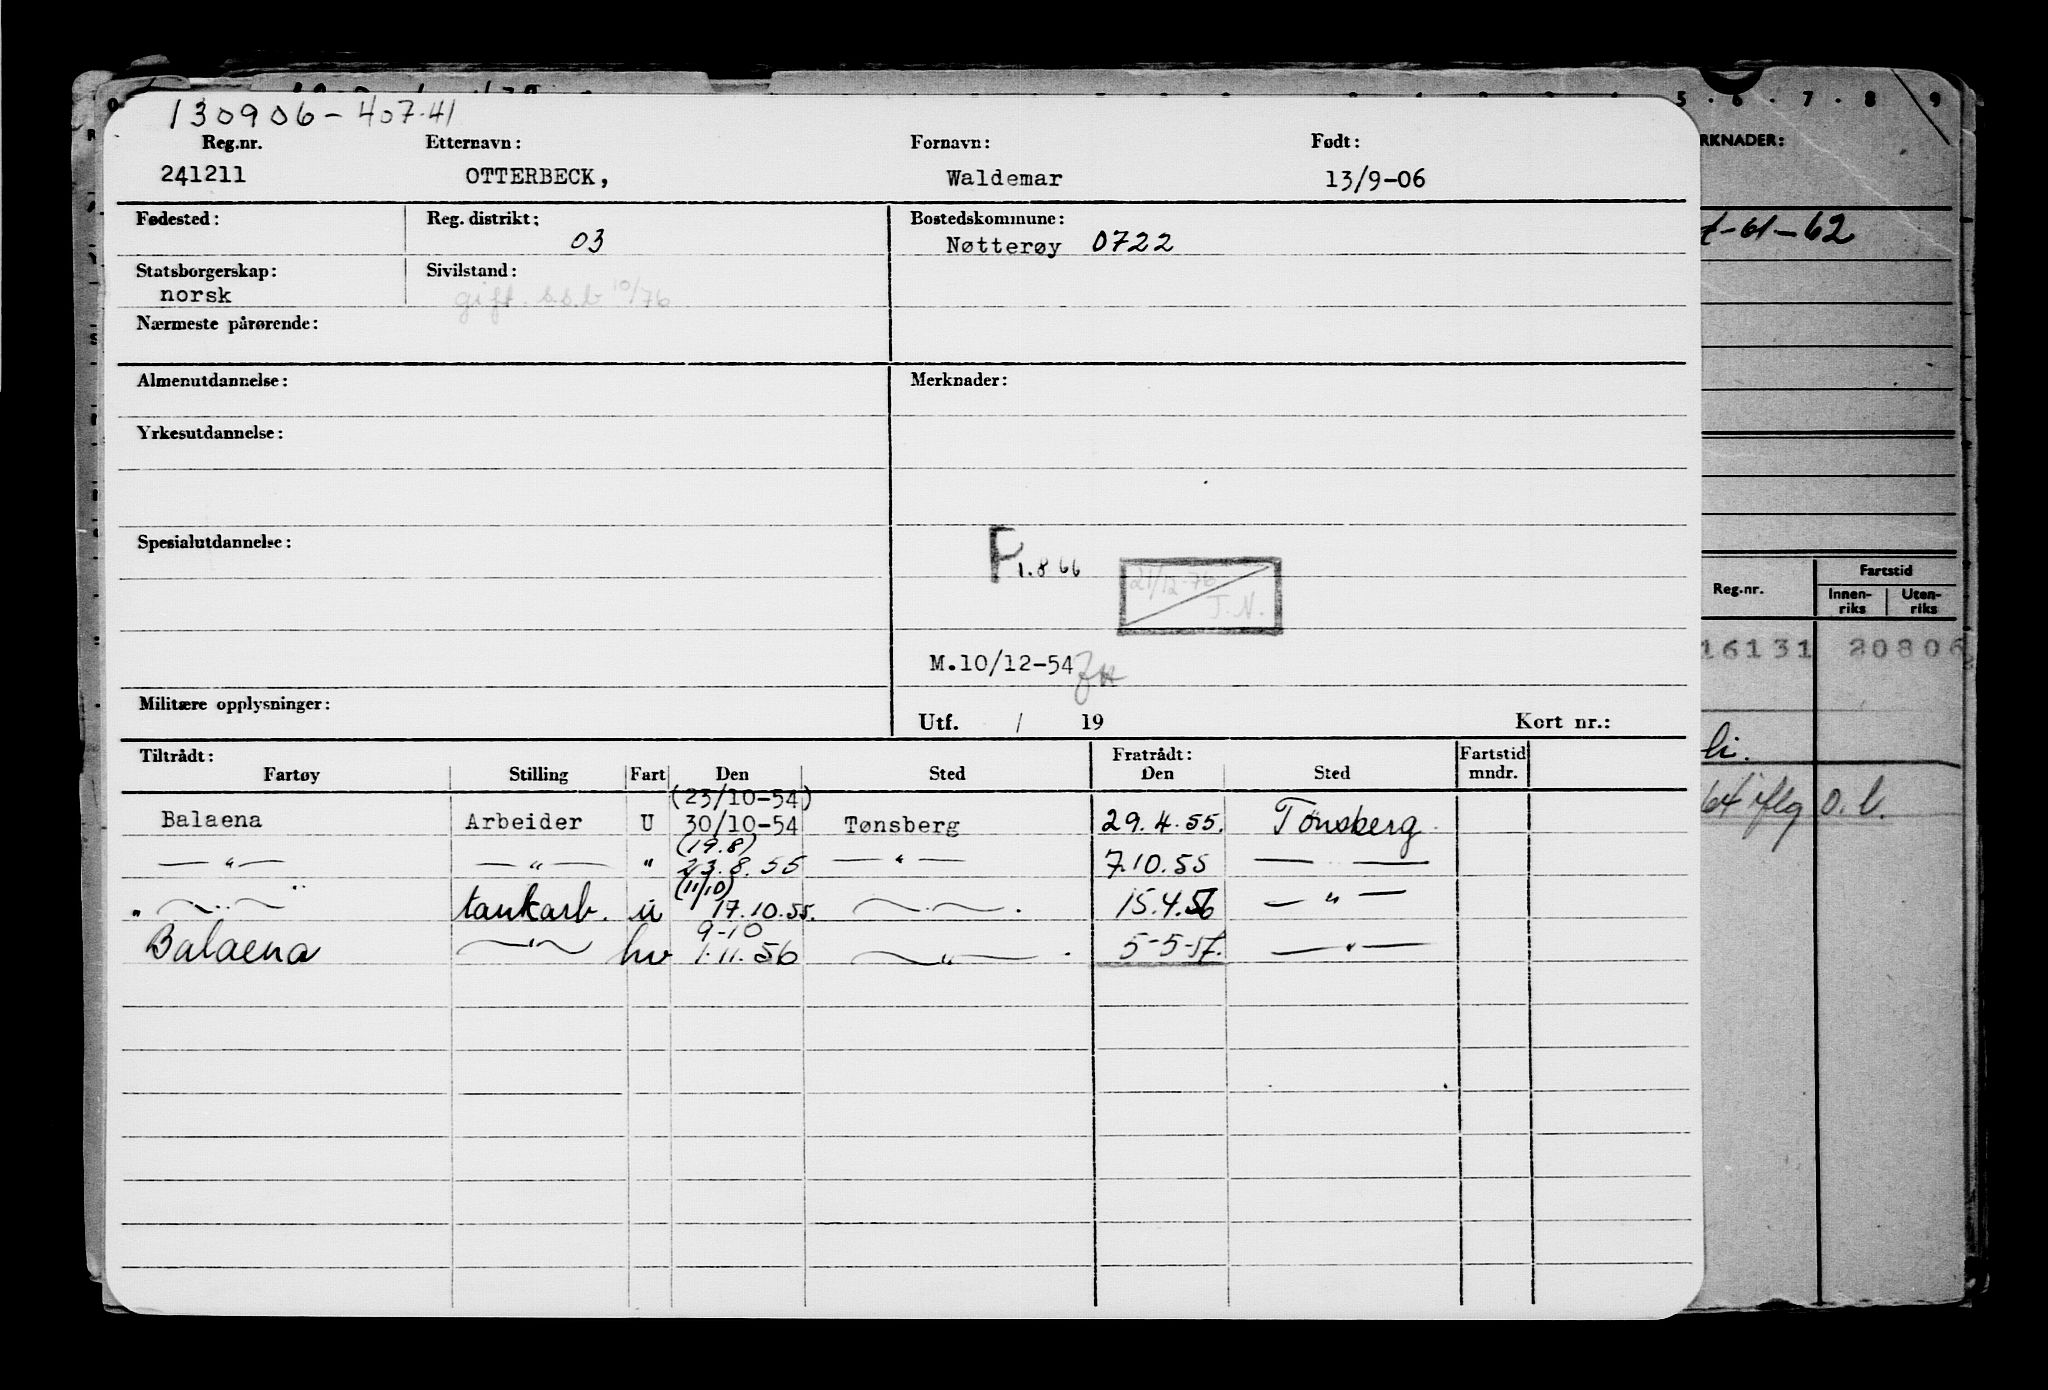 130906-407.41
Reg.nr. Etternavn: Fornavn: Født:
241211 OTTERBECK, Waldemar 13/9-06
Fødested: Reg. distrikt: Bostedskommune:
03 Nøtterøy 0722
Statsborgerskap: Sivilstand:
norsk gift. s.s.b 10/76
Nærmeste pårørende:
Almenutdannelse: Merknader:
Yrkesutdannelse:
Spesialutdannelse:
F 1.8 66
21/12-76
J.N.
M.10/12-54
Militære opplysninger:
Utf. / 19 Kort nr.:
Tiltrådt: Fratrådt: Fartstid
Fartøy Stilling Fart Den Sted Den Sted mndr.
(23/10-54)
Balaena Arbeider U 30/10-54 Tønsberg 29.4.55. Tønsberg
(19.8)
— " — — " — " 23.8.55 — " — 7.10.55 — —
(11/10)
" — " — tankarb. u 17.10.55. — " — . 15.4.56 — " —
9-10
Balaena — " — hv 1.11.56 — " — . 5-5-57. — " —
5 . 6 . 7 . 8 9
RKNADER:
-61-62
Reg.nr. Fartstid
Innen-riks Uten-riks
16131 20806
li.
64 iflg o.l.